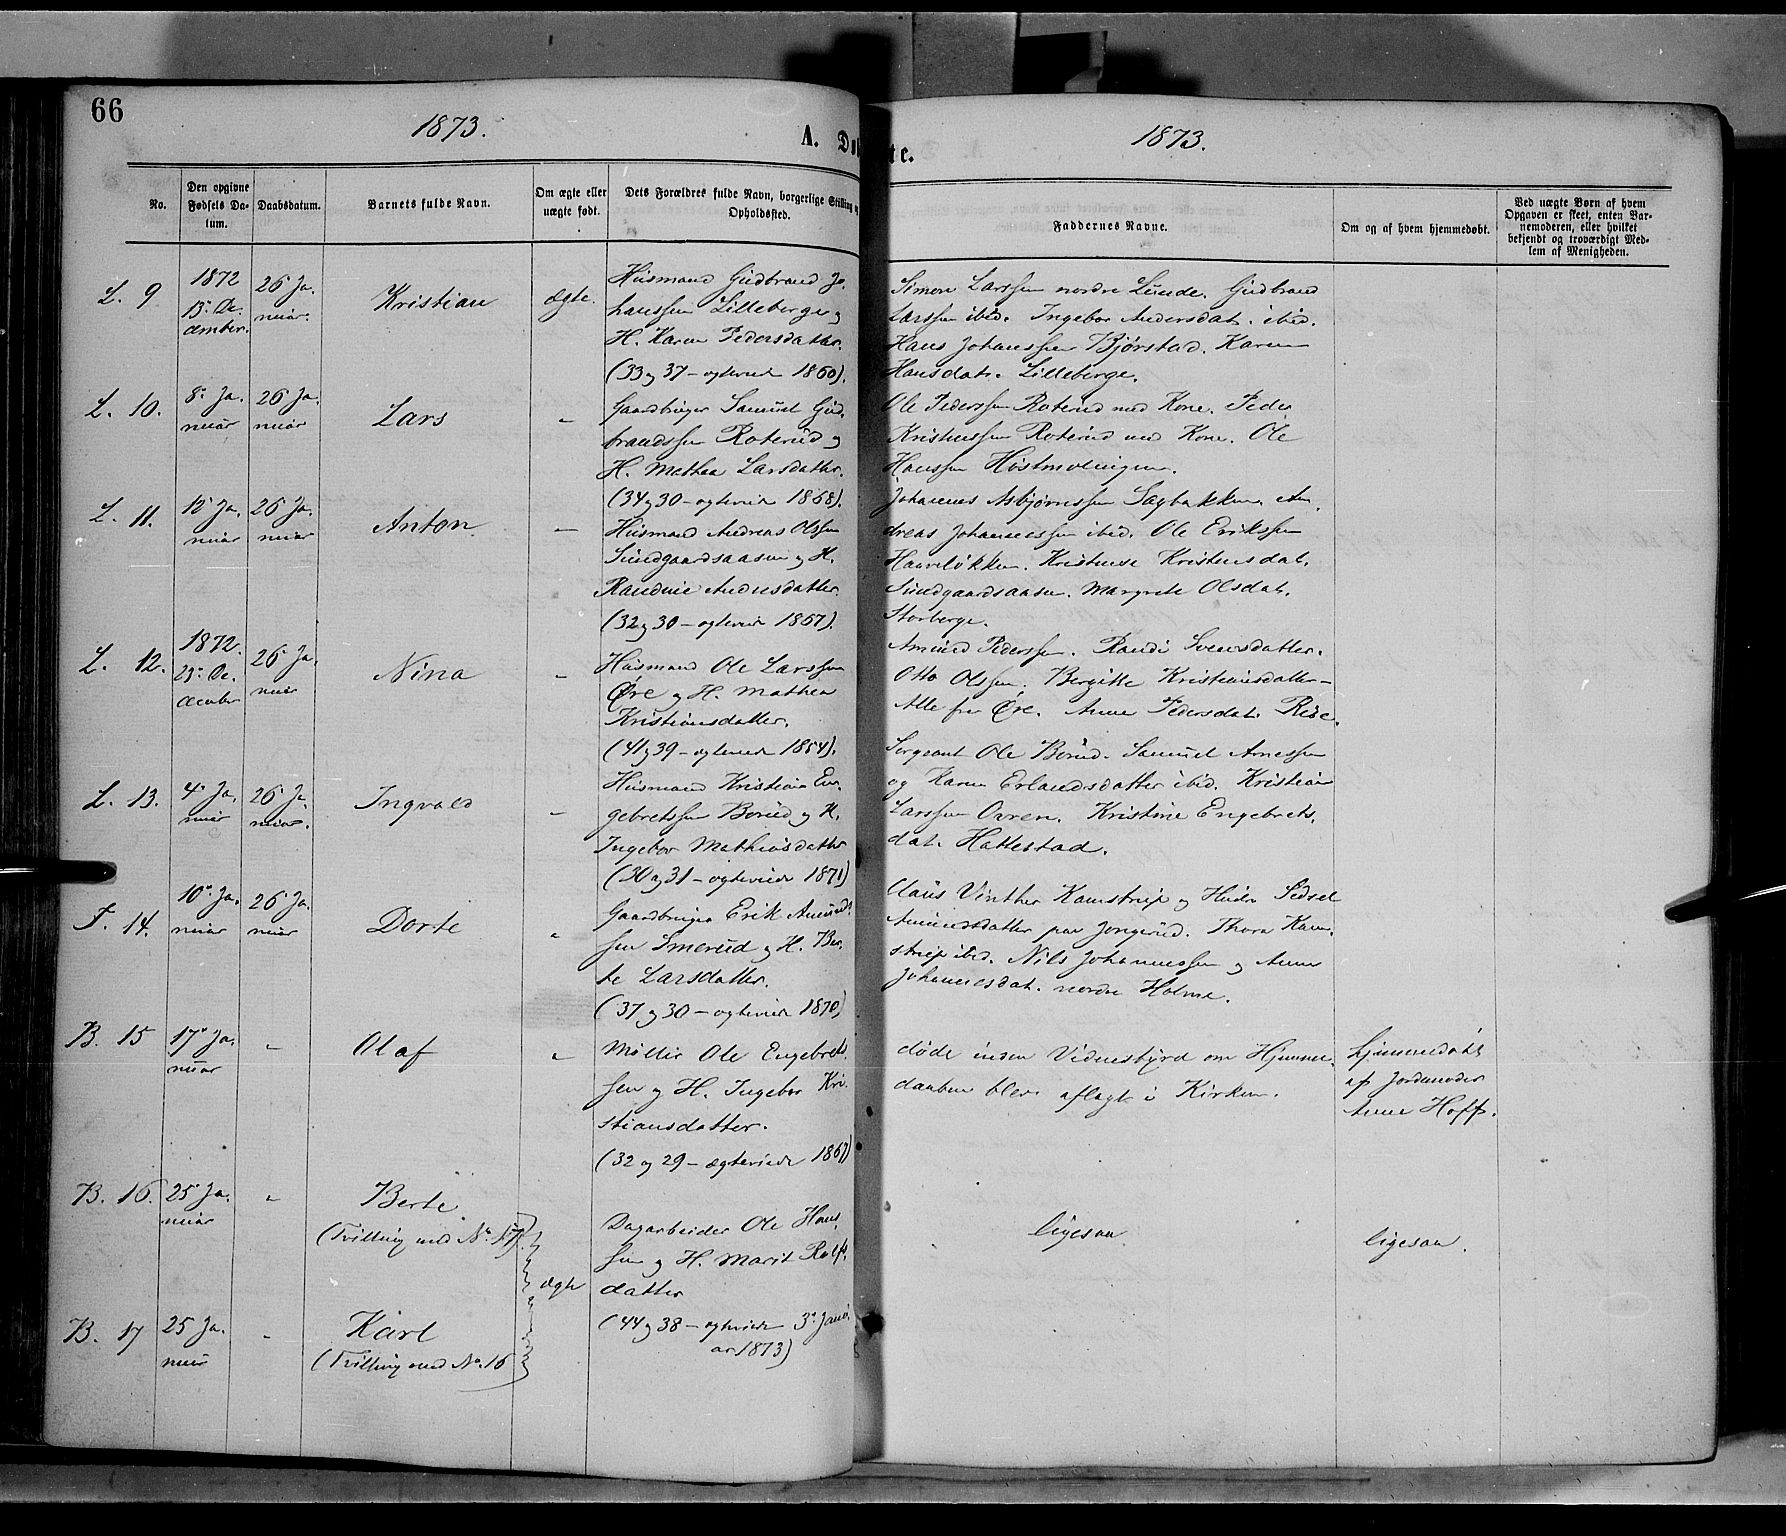 66
1873.
A. Døbte.
1873.
No.
Den opgivne Fødsels Datum.
Daabsdatum.
Barnets fulde Navn.
Om ægte eller uægte født.
Dets Forældres fulde Navn, borgerlige Stilling og Opholdssted.
Faddernes Navne.
Om og af hvem hjemmedøbt.
Ved uægte Børn af hvem Opgaven er skeet, enten Barnemoderen, eller hvilket bekjendt og troværdigt Medlem af Menigheden.
L. 9
1872
15 December.
26 Januar.
Kristian
ægte.
Husmand Gudbrand Jo-
hanssen Lilleberge og
H. Karen Pedersdatter.
(33 og 37 – ægteviede 1860).
Simon Larssen nordre Lunde. Gudbrand
Larssen ibid. Ingebor Andersdat. ibid.
Hans Johanssen Bjørstad. Karen
Hansdat. Lilleberge.
L. 10.
8 Januar
26 Januar
Lars
Gaardbruger Samuel Gud-
brandssen Roterud og
H. Mathea Larsdatter.
(34 og 30 – ægteviede 1868).
Ole Pederssen Roterud med Kone. Peder
Roterud med Kone. Ole
Hanssen
L. 11.
12 Januar
26 Januar
Anton
Husmand Andreas Olssen
Sundgaardsaasen og H.
Randine Andersdatter.
(32 og 30 – ægteviede 1867).
Johannes Asbjørnssen Sagbakken. An-
dreas Johannessen ibid. Ole Erikssen
Haveløkken. Kristense Kristensdat.
Sundgaardsaasen. Margrete Olsdat.
Storberge.
L. 12.
1872.
December
26 Januar
Nina
Husmand Ole Larssen
Øre og H. Mathea
Kristiansdatter.
(41 og 39 – ægteviede 1854).
Amund Pederssen. Randi Svensdatter.
Otto Olssen. Bergitte Kristiansdatter –
Alle fra Øre. Anne Pedersdat. Rise.
L. 13.
4 Januar
26 Januar.
Ingvald
Husmand Kristian En-
gebretssen Borud og H.
Ingebor Mathiasdatter
(30 og 31 – ægteviede 1871)
Sergeant Ole Borud. Samuel Arnessen
og Karen Erlandsdatter ibid. Kristian
Larssen Ovren. Kristine Engebrets-
dat. Hattestad.
T. 14.
10 Januar
26 Januar
Dorte
Gaardbruger Erik Amund-
sen Smerud og H. Ber-
te Larsdatter.
(37 og 30 – ægteviede 1870)
Claus Vinther Kamstrup og Hustru Sidsel
Amundsdatter paa Jongerud. Thora Kam-
strup ibid. Nils Johannessen og Anne
Johannesdat. nordre Holme.
B. 15
17 Januar
Olaf
Møller Ole Engebret-
sen og H. Ingebor Kri-
stiansdatter.
(32 og 29 – ægteviede 1867)
døde inden Vidnesbyrd om Hjemme-
daaben blev aflagt i Kirken.
hjemmedøbt
af Jordmoder
Anne Hoff.
B. 16.
25 Januar
Berte
(Tvilling med No. 17)
ægte
Dagarbeider Ole Hans-
sen og H. Marit Rolfs-
datter
(44 og 38 – ægteviede 3 Janu-
ar 1873)
ligesaa
ligesaa.
B. 17
25 Januar
Karl
(Tvilling med No. 16